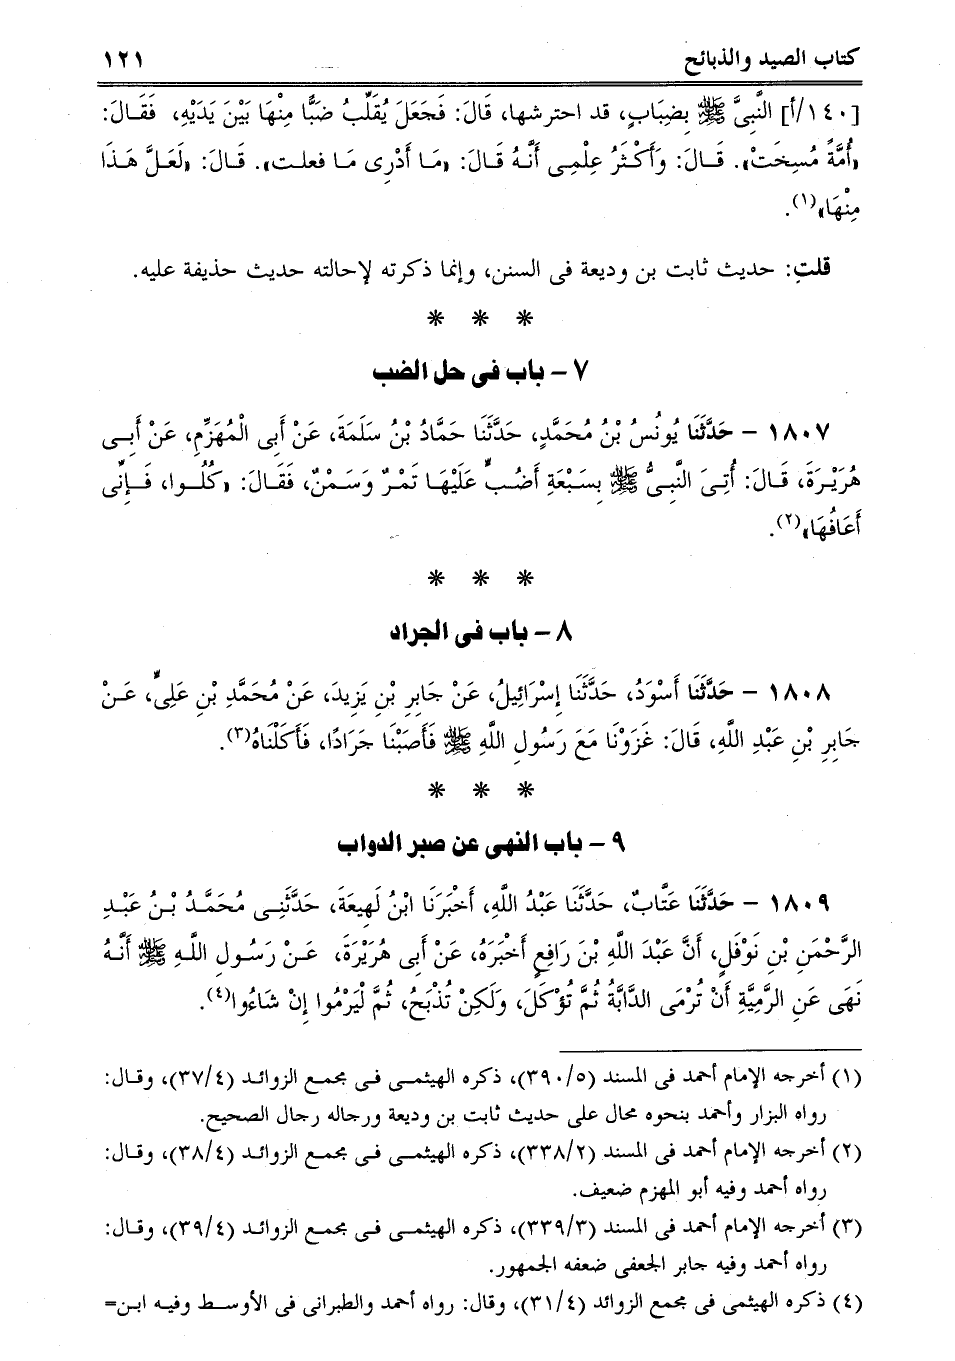 كتاب الصيد والذبائح ١٢١
[١٤٠/أ] النَّبِىَّ ﷺ بِضِبَابٍ، قد احترشها، قَالَ: فَجَعَلَ يُقَلِّبُ ضَبًّا مِنْهَا بَيْنَ يَدَيْهِ، فَقَالَ:
«أُمَّةً مُسِخَتْ». قَالَ: وَأَكْثَرُ عِلْمِى أَنَّهُ قَالَ: «مَا أَدْرِى مَا فعلت». قَالَ: «لَعَلَّ هَذَا
مِنْهَا»(١).
قلت: حديث ثابت بن وديعة فى السنن، وإنما ذكرته لإحالته حديث حذيفة عليه.
* * *
٧ - باب فى حل الضب
١٨٠٧ - حَدَّثَنَا يُونُسُ بْنُ مُحَمَّدٍ، حَدَّثَنَا حَمَّادُ بْنُ سَلَمَةَ، عَنْ أَبِى الْمُهَزِّمِ، عَنْ أَبِى
هُرَيْرَةَ، قَالَ: أُتِىَ النَّبِىُّ ﷺ بِسَبْعَةِ أَضُبٍّ عَلَيْهَا تَمْرٌ وَسَمْنٌ، فَقَالَ: «كُلُوا، فَإِنِّى
أَعَافُهَا»(٢).
* * *
٨ - باب فى الجراد
١٨٠٨ - حَدَّثَنَا أَسْوَدُ، حَدَّثَنَا إِسْرَائِيلُ، عَنْ جَابِرِ بْنِ يَزِيدَ، عَنْ مُحَمَّدِ بْنِ عَلِىٍّ، عَنْ
جَابِرِ بْنِ عَبْدِ اللَّهِ، قَالَ: غَزَوْنَا مَعَ رَسُولِ اللَّهِ ﷺ فَأَصَبْنَا جَرَادًا، فَأَكَلْنَاهُ(٣).
* * *
٩ - باب النهى عن صبر الدواب
١٨٠٩ - حَدَّثَنَا عَتَّابٌ، حَدَّثَنَا عَبْدُ اللَّهِ، أَخْبَرَنَا ابْنُ لَهِيعَةَ، حَدَّثَنِى مُحَمَّدُ بْنُ عَبْدِ
الرَّحْمَنِ بْنِ نَوْفَلٍ، أَنَّ عَبْدَ اللَّهِ بْنَ رَافِعٍ أَخْبَرَهُ، عَنْ أَبِى هُرَيْرَةَ، عَنْ رَسُولِ اللَّهِ ﷺ أَنَّهُ
نَهَى عَنِ الرَّمِيَّةِ أَنْ تُرْمَى الدَّابَّةُ ثُمَّ تُؤْكَلَ، وَلَكِنْ تُذْبَحُ، ثُمَّ لْيَرْمُوا إِنْ شَاءُوا(٤).
(١) أخرجه الإمام أحمد فى المسند (٣٩٠/٥)، ذكره الهيثمى فى مجمع الزوائد (٣٧/٤)، وقال:
رواه البزار وأحمد بنحوه محال على حديث ثابت بن وديعة ورجاله رجال الصحيح.
(٢) أخرجه الإمام أحمد فى المسند (٣٣٨/٢)، ذكره الهيثمى فى مجمع الزوائد (٣٨/٤)، وقال:
رواه أحمد وفيه أبو المهزم ضعيف.
(٣) أخرجه الإمام أحمد فى المسند (٣٣٩/٣)، ذكره الهيثمى فى مجمع الزوائد (٣٩/٤)، وقال:
رواه أحمد وفيه جابر الجعفى ضعفه الجمهور.
(٤) ذكره الهيثمى فى مجمع الزوائد (٣١/٤)، وقال: رواه أحمد والطبرانى فى الأوسط وفيه ابن=